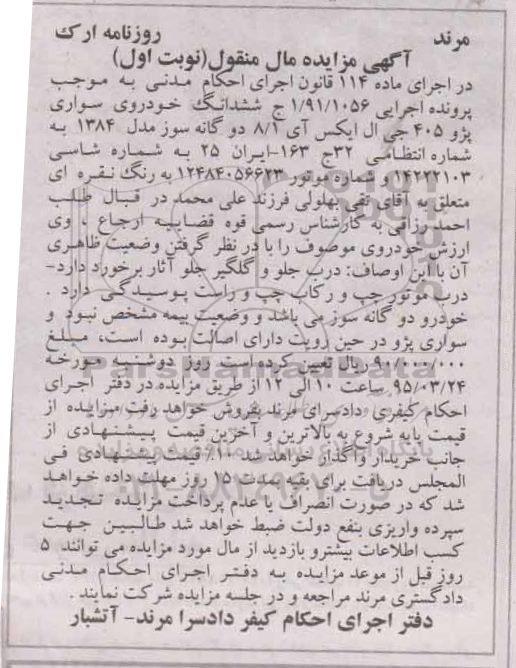 مرند روزنامه ارک
آگهی مزایده مال منقول(نوبت اول)
در اجرای ماده ۱۱۴ قانون اجرای احکام مدنی به موجب
پرونده اجرایی ۱/۹۱/۱۰۵۶ ج ششدانگ خودروی سواری
پژو ۴۰۵ جی ال ایکس آی ۸/۱ دو گانه سوز مدل ۱۳۸۴ به
شماره انتظامی ۳۲ج ۱۶۳-ایران ۲۵ به شماره شاسی
۱۴۲۲۲۱۰۳ و شماره موتور ۱۲۴۸۴۰۵۶۶۲۳ به رنگ نقره ای
متعلق به آقای تقی بهلولی فرزند علی محمد در قبال طلب
احمد رزاقی به کارشناس رسمی قوه قضاییه ارجاع ، وی
ارزش خودروی موصوف را با در نظر گرفتن وضعیت ظاهری
آن با این اوصاف: درب جلو و گلگیر جلو آثار برخورد دارد-
درب موتور چپ و رکاب چپ و راست پوسیدگی دارد .
خودرو دو گانه سوز می باشد و وضعیت بیمه مشخص نبود و
سواری پژو در حین رویت دارای اصالت بوده است، مبلغ
۹۰/۰۰۰/۰۰۰ ریال تعیین کرده است روز دوشنبه مورخه
۹۵/۰۳/۲۴ ساعت ۱۰ الی ۱۲ از طریق مزایده در دفتر اجرای
احکام کیفری دادسرای مرند بفروش خواهد رفت مزایده از
قیمت پایه شروع به بالاترین و آخرین قیمت پیشنهادی از
جانب خریدار واگذار خواهد شد ۱۰٪ قیمت پیشنهادی فی
المجلس دریافت برای بقیه مدت ۱۵ روز مهلت داده خواهد
شد که در صورت انصراف یا عدم پرداخت مزایده تجدید
سپرده واریزی بنفع دولت ضبط خواهد شد طالبین جهت
کسب اطلاعات بیشترو بازدید از مال مورد مزایده می توانند ۵
روز قبل از موعد مزایده به دفتر اجرای احکام مدنی
دادگستری مرند مراجعه و در جلسه مزایده شرکت نمایند .
دفتر اجرای احکام کیفر دادسرا مرند- آتشبار
ParsNamadData